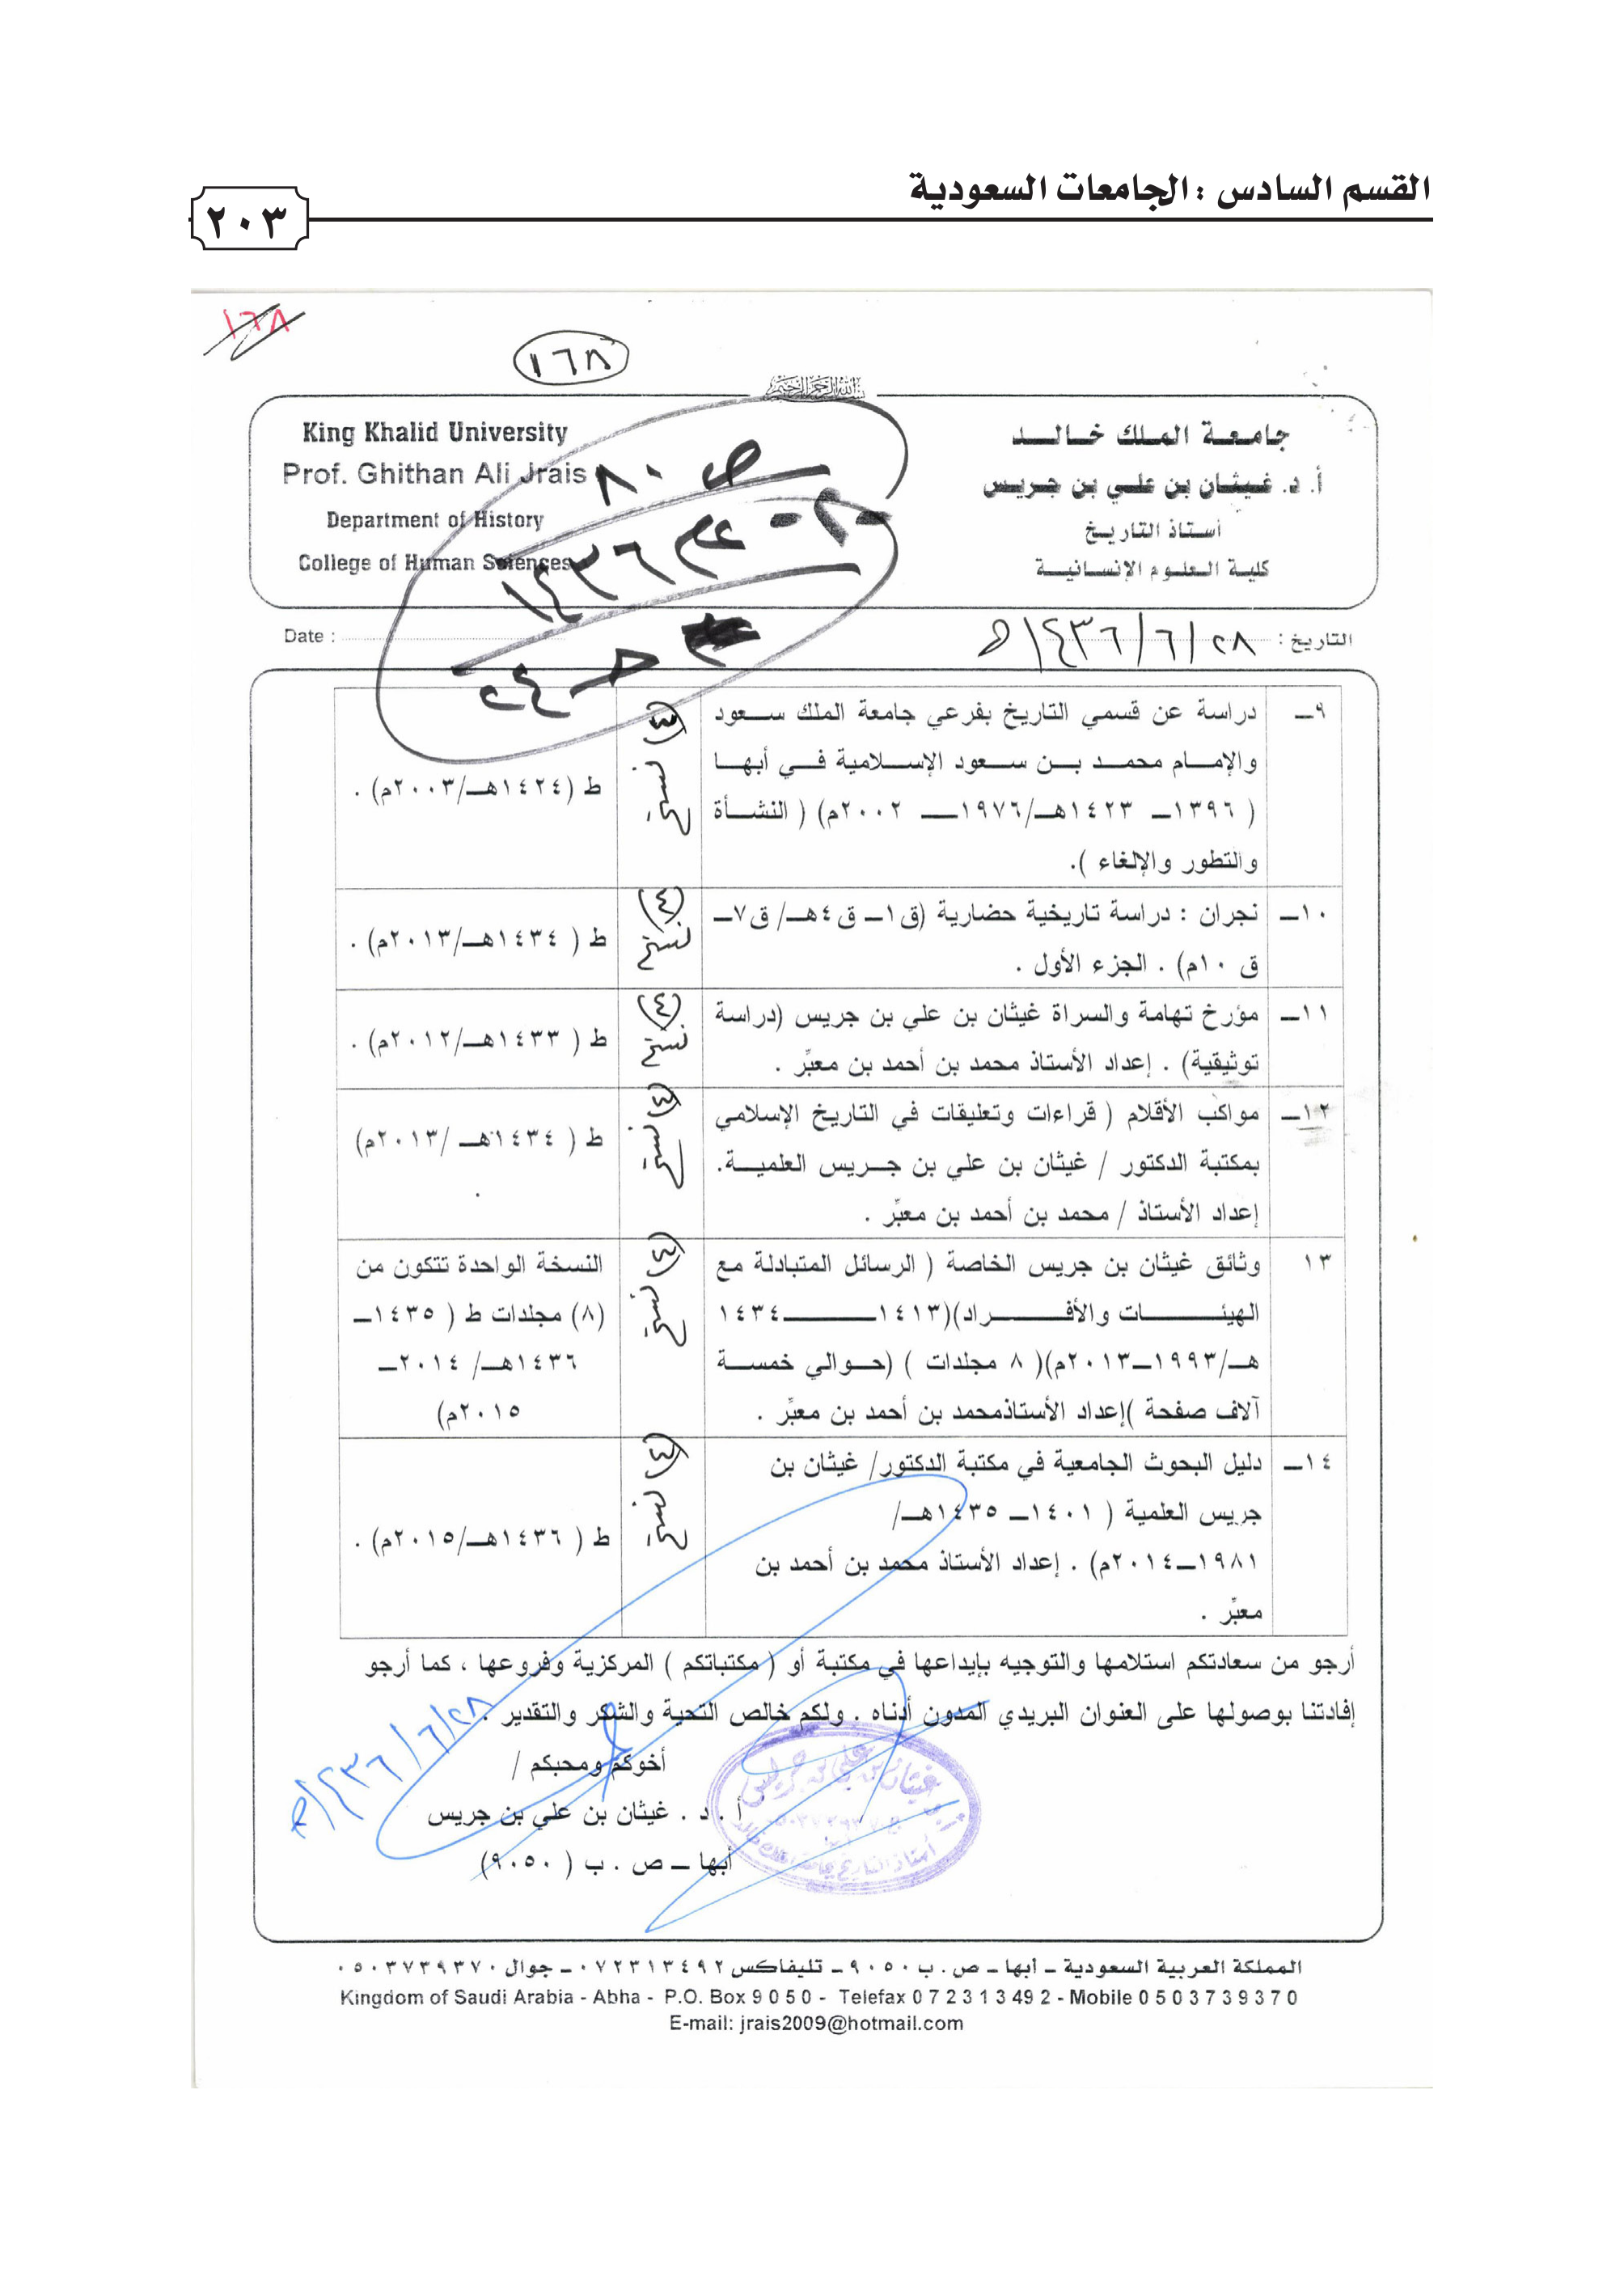 القسم السادس : الجامعات السعودية
٢٠٣
١٦٨
١٦٨
بسم الله الرحمن الرحيم
King Khalid University
Prof. Ghithan Ali Jrais
Department of History
College of Human Sciences
جامعة الملك خالد
أ. د. غيثان بن علي بن جريس
أستاذ التاريخ
كلية العلوم الإنسانية
ص ٨٠
١٤٣٦
Date :
التاريخ : ٢٨/٦/١٤٣٦هـ
٩ـ دراسة عن قسمي التاريخ بفرعي جامعة الملك سعود
والإمام محمد بن سعود الإسلامية في أبها
( ١٣٩٦ـ ١٤٢٣هـ/١٩٧٦ـ ٢٠٠٢م) ( النشأة
والتطور والإلغاء ).
(٤) نسخ
ط (١٤٢٤هـ/٢٠٠٣م) .
١٠ـ نجران : دراسة تاريخية حضارية (ق١ـ ق٤هـ/ ق٧ـ
ق ١٠م) . الجزء الأول .
(٤) نسخ
ط ( ١٤٣٤هـ/٢٠١٣م) .
١١ـ مؤرخ تهامة والسراة غيثان بن علي بن جريس (دراسة
توثيقية) . إعداد الأستاذ محمد بن أحمد بن معبِّر .
(٤) نسخ
ط ( ١٤٣٣هـ/٢٠١٢م) .
١٢ـ مواكب الأقلام ( قراءات وتعليقات في التاريخ الإسلامي
بمكتبة الدكتور / غيثان بن علي بن جريس العلمية.
إعداد الأستاذ / محمد بن أحمد بن معبِّر .
(٤) نسخ
ط ( ١٤٣٤هـ /٢٠١٣م)
.
١٣ وثائق غيثان بن جريس الخاصة ( الرسائل المتبادلة مع
الهيئات والأفراد)(١٤١٣ـ ١٤٣٤
هـ/١٩٩٣ـ٢٠١٣م)( ٨ مجلدات ) (حوالي خمسة
آلاف صفحة )إعداد الأستاذمحمد بن أحمد بن معبِّر .
(٤) نسخ
النسخة الواحدة تتكون من
(٨) مجلدات ط ( ١٤٣٥ـ
١٤٣٦هـ/ ٢٠١٤ـ
٢٠١٥م)
١٤ـ دليل البحوث الجامعية في مكتبة الدكتور/ غيثان بن
جريس العلمية ( ١٤٠١ـ ١٤٣٥هـ/
١٩٨١ـ٢٠١٤م) . إعداد الأستاذ محمد بن أحمد بن
معبِّر .
(٤) نسخ
ط ( ١٤٣٦هـ/٢٠١٥م) .
أرجو من سعادتكم استلامها والتوجيه بإيداعها في مكتبة أو ( مكتباتكم ) المركزية وفروعها ، كما أرجو
إفادتنا بوصولها على العنوان البريدي المدون أدناه . ولكم خالص التحية والشكر والتقدير .
٢٨/٦/١٤٣٦هـ
أخوكم ومحبكم /
أ . د . غيثان بن علي بن جريس
أبها ـ ص . ب ( ٩٠٥٠)
المملكة العربية السعودية ـ أبها ـ ص . ب ٩٠٥٠ ـ تليفاكس ٠٧٢٣١٣٤٩٢ ـ جوال ٠٥٠٣٧٣٩٣٧٠
Kingdom of Saudi Arabia - Abha - P.O. Box 9 0 5 0 - Telefax 0 7 2 3 1 3 49 2 - Mobile 0 5 0 3 7 3 9 3 7 0
E-mail: jrais2009@hotmail.com